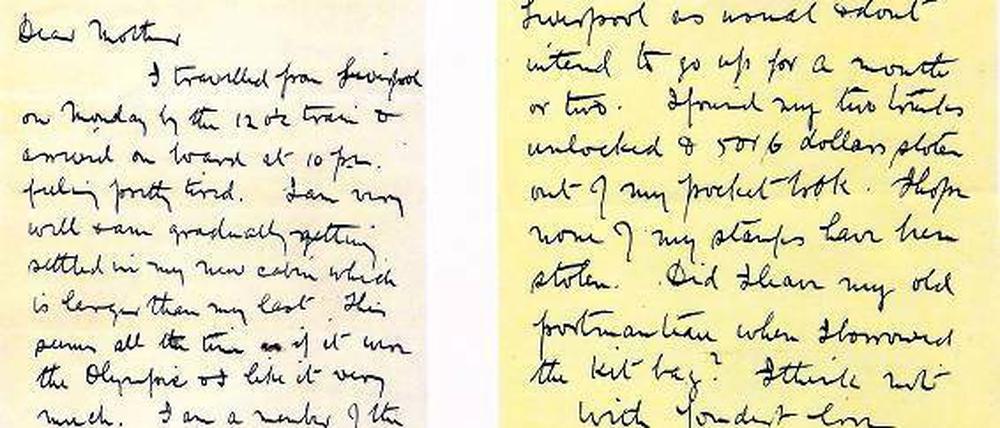 Dear Mother
I travelled from Liverpool
on Monday by the 12 o'c train &
arrived on board at 10 p.m.
feeling pretty tired. I am very
well & am gradually getting
settled in my new cabin which
is larger than my last. This
seems all the time as if it were
the Olympic & I like it very
much. I am a member of the
Liverpool as usual & don't
intend to go up for a month
or two. I found my two trunks
unlocked & 5 or 6 dollars stolen
out of my pocket book. I hope
none of my stamps have been
stolen. Did I leave my old
portmanteau when I borrowed
the kit bag? I think not
With fondest love